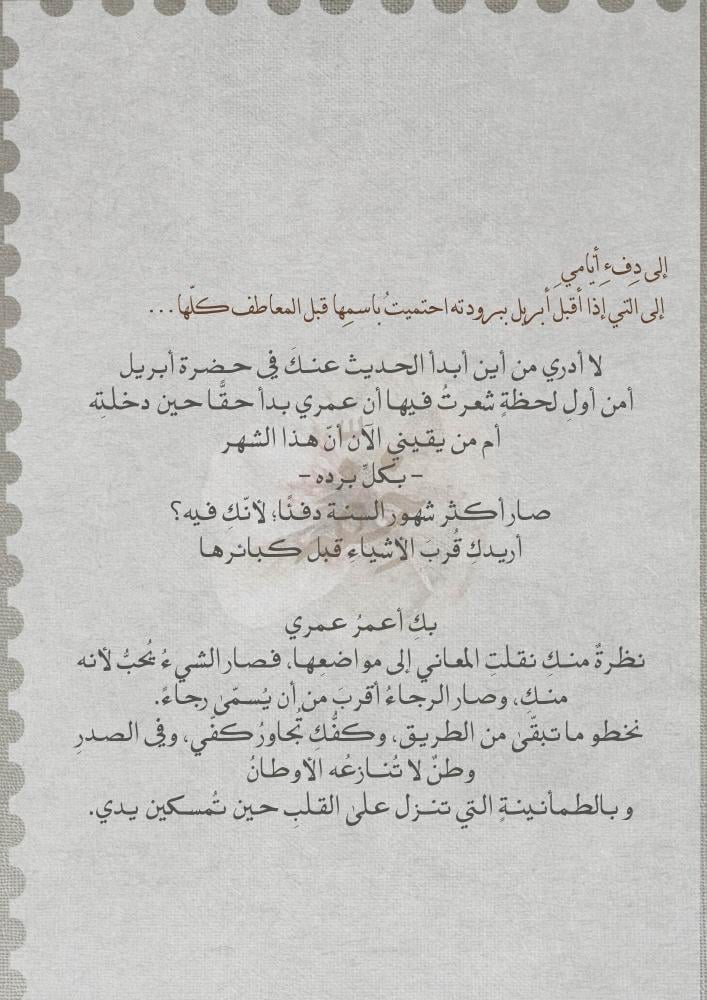 إلى دِفءِ أيامي
إلى التي إذا أقبلَ أبريل ببرودته احتميتُ باسمِها قبل المعاطف كلّها...
لا أدري من أين أبدأ الحديث عنكَ في حضرة أبريل
أمن أولِ لحظةٍ شعرتُ فيها أن عمري بدأ حقًّا حين دخلتِه
أم من يقيني الآن أنّ هذا الشهر
- بكلِّ برده -
صار أكثر شهور السنة دفئًا؛ لأنّكِ فيه؟
أريدكِ قُربَ الأشياءِ قبل كبائرها
بكِ أعمرُ عمري
نظرةٌ منكِ نقلتِ المعاني إلى مواضعِها، فصار الشيءُ يُحبُّ لأنه
منكِ، وصار الرجاءُ أقربَ من أن يُسمّىٰ رجاءً.
نخطو ما تبقّىٰ من الطريق، وكفُّكِ تُجاورُ كفّي، وفي الصدرِ
وطنٌ لا تُنازعُه الأوطانُ
وبالطمأنينةِ التي تنزل علىٰ القلبِ حين تُمسكين يدي.